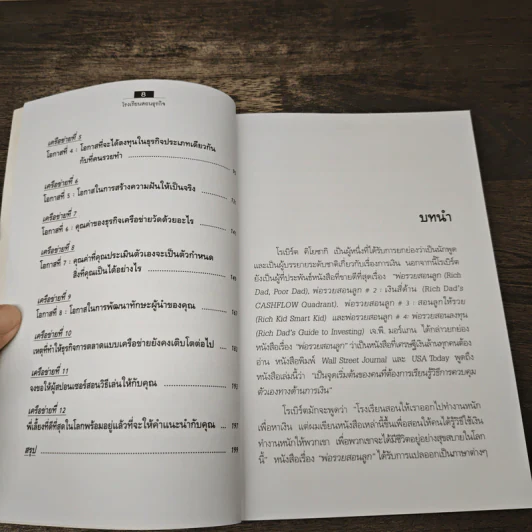 8
โรงเรียนสอนธุรกิจ
เครือข่ายที่ 5
โอกาสที่ 4 : โอกาสที่จะได้ลงทุนในธุรกิจประเภทเดียวกัน
กับที่คนรวยทำ
เครือข่ายที่ 6
โอกาสที่ 5 : โอกาสในการสร้างความฝันให้เป็นจริง
เครือข่ายที่ 7
โอกาสที่ 6 : คุณค่าของธุรกิจเครือข่ายวัดด้วยอะไร
เครือข่ายที่ 8
โอกาสที่ 7 : คุณค่าที่คุณประเมินตัวเองจะเป็นตัวกำหนด
สิ่งที่คุณเป็นได้อย่างไร
เครือข่ายที่ 9
โอกาสที่ 8 : โอกาสในการพัฒนาทักษะผู้นำของคุณ
เครือข่ายที่ 10
เหตุที่ทำให้ธุรกิจการตลาดแบบเครือข่ายยังคงเติบโตต่อไป
เครือข่ายที่ 11
จงขอให้ผู้สปอนเซอร์สอนวิธีเล่นให้กับคุณ 193
เครือข่ายที่ 12
พี่เลี้ยงที่ดีที่สุดในโลกพร้อมอยู่แล้วที่จะให้คำแนะนำกับคุณ ... 197
สรุป 199
บทนำ
โรเบิร์ต คิโยซากิ เป็นผู้หนึ่งที่ได้รับการยกย่องว่าเป็นนักพูด
และเป็นผู้บรรยายระดับชาติเกี่ยวกับเรื่องการเงิน นอกจากนี้โรเบิร์ต
ยังเป็นผู้ที่ประพันธ์หนังสือที่ขายดีที่สุดเรื่อง "พ่อรวยสอนลูก (Rich
Dad, Poor Dad), พ่อรวยสอนลูก # 2 : เงินสี่ด้าน (Rich Dad's
CASHFLOW Quadrant), พ่อรวยสอนลูก # 3 : สอนลูกให้รวย
(Rich Kid Smart Kid) และพ่อรวยสอนลูก # 4: พ่อรวยสอนลงทุน
(Rich Dad's Guide to Investing) เจ.พี. มอร์แกน ได้กล่าวยกย่อง
หนังสือเรื่อง "พ่อรวยสอนลูก" ว่าเป็นหนังสือที่เศรษฐีเงินล้านทุกคนต้อง
อ่าน หนังสือพิมพ์ Wall Street Journal และ USA Today พูดถึง
หนังสือเล่มนี้ว่า "เป็นจุดเริ่มต้นของคนที่ต้องการเรียนรู้วิธีการควบคุม
ตัวเองทางด้านการเงิน"
โรเบิร์ตมักจะพูดว่า "โรงเรียนสอนให้เราออกไปทำงานหนัก
เพื่อหาเงิน แต่ผมเขียนหนังสือเหล่านี้ขึ้นเพื่อสอนให้คนได้รู้วิธีใช้เงิน
ทำงานหนักให้พวกเขา เพื่อพวกเขาจะได้มีชีวิตอยู่อย่างสุขสบายในโลก
นี้" หนังสือเรื่อง "พ่อรวยสอนลูก" ได้รับการแปลออกเป็นภาษาต่างๆ